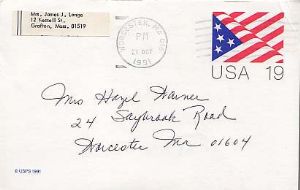 Mrs. James J. Longo
Grafton, Mass. 01519
WORCESTER, MA
PM
21 OCT
1991
USA 19
Mrs Hazel Warner
24 Saybrook Road
Worcester Ma 01604
© USPS 1991